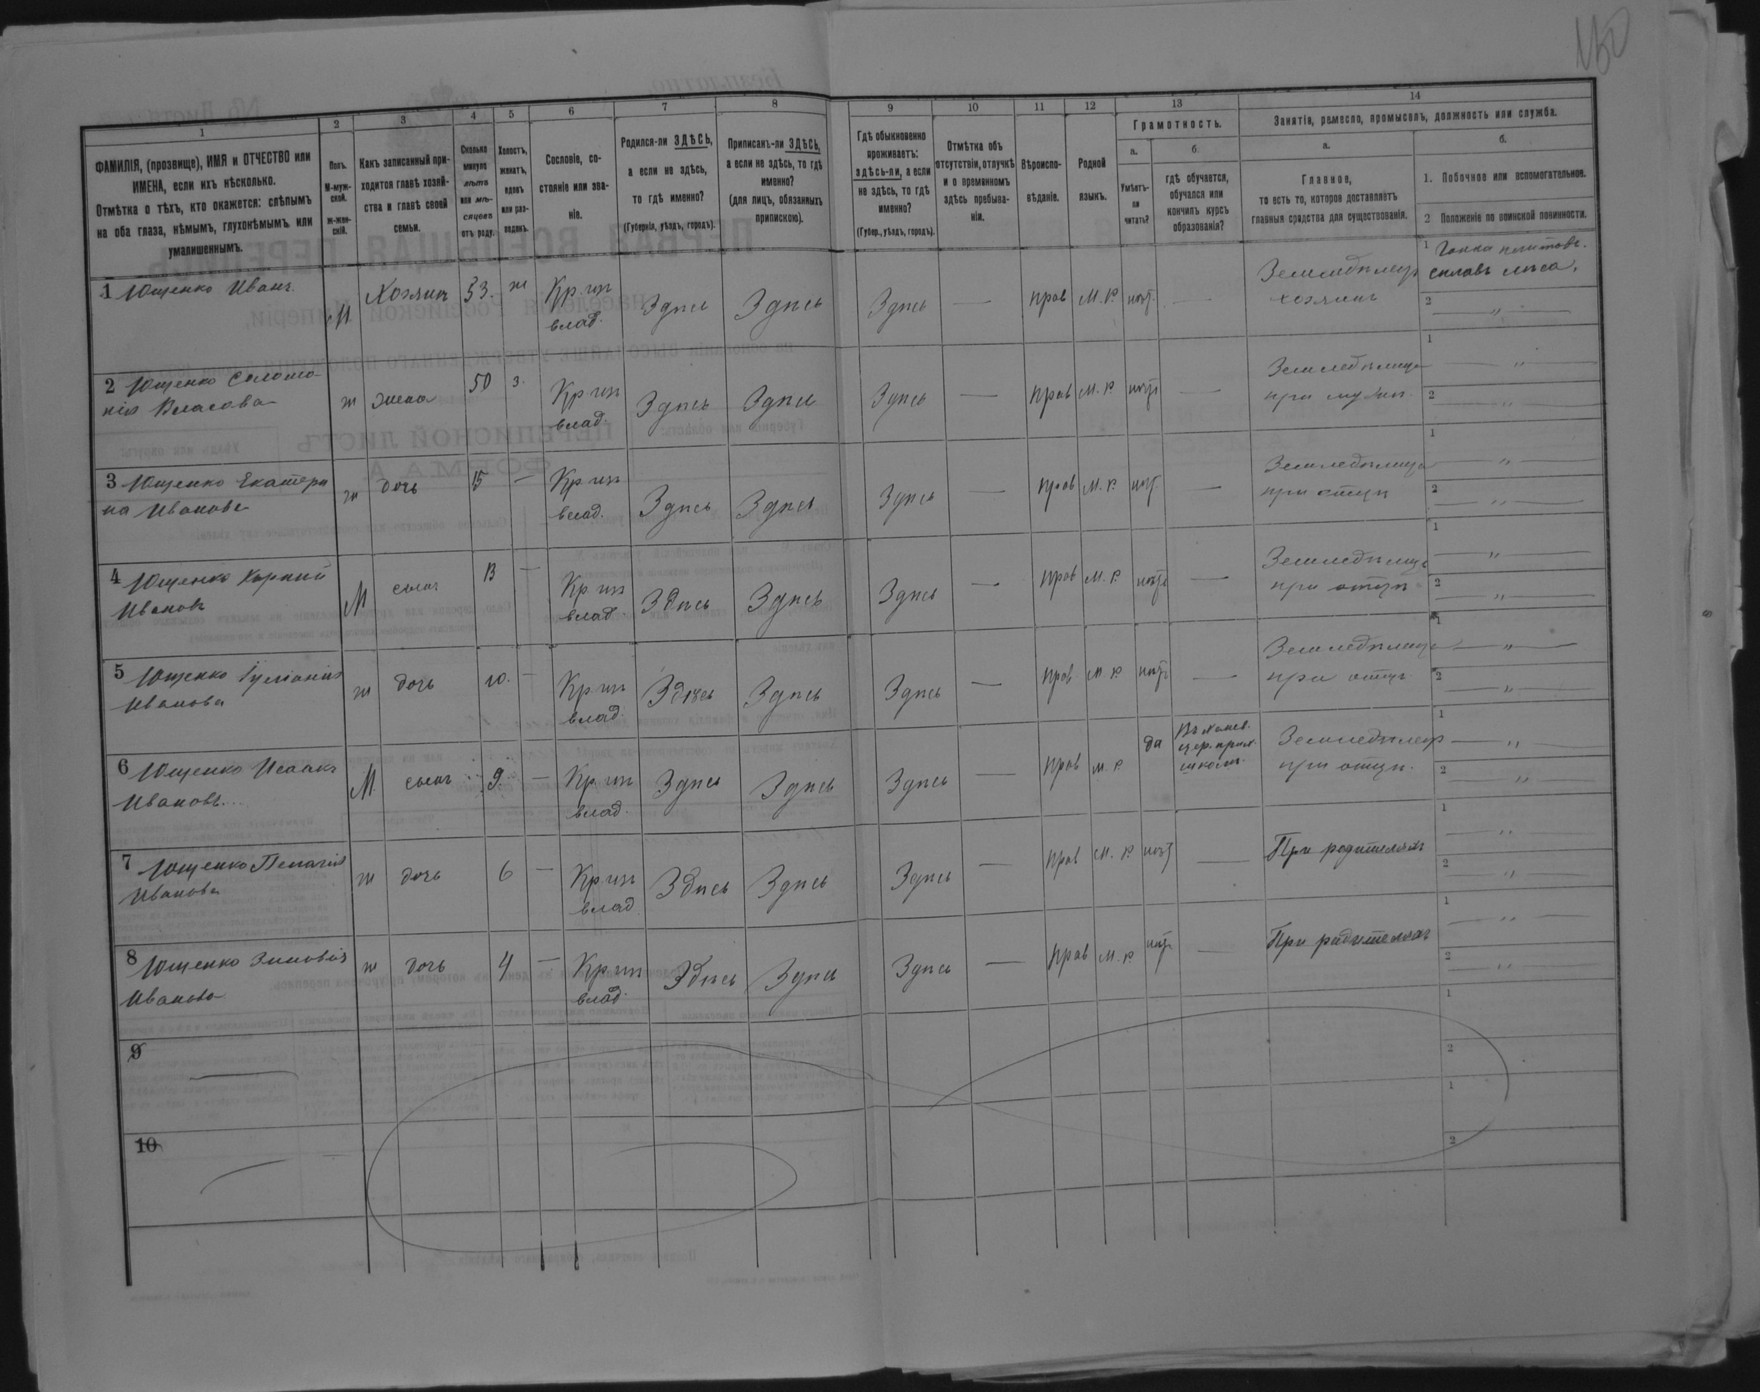 150
1 2 3 4 5 6 7 8 9 10 11 12 13 14
ФАМИЛІЯ, (прозвище), ИМЯ и ОТЧЕСТВО или
ИМЕНА, если ихъ нѣсколько.
Отмѣтка о тѣхъ, кто окажется: слѣпымъ
на оба глаза, нѣмымъ, глухонѣмымъ или
умалишеннымъ.
Полъ.
М-муж-
ской.
Ж-жен-
скій.
Какъ записанный при-
ходится главѣ хозяй-
ства и главѣ своей
семьи.
Сколько
минуло
лѣтъ
или мѣ-
сяцевъ
отъ роду.
Холостъ,
женатъ,
вдовъ
или раз-
веденъ.
Сословіе, со-
стояніе или зва-
ніе.
Родился-ли ЗДѢСЬ,
а если не здѣсь,
то гдѣ именно?
(Губернія, уѣздъ, городъ).
Приписанъ-ли ЗДѢСЬ,
а если не здѣсь, то гдѣ
именно?
(для лицъ, обязанныхъ
припискою).
Гдѣ обыкновенно
проживаетъ:
здѣсь-ли, а если
не здѣсь, то гдѣ
именно?
(Губер., уѣздъ, городъ).
Отмѣтка объ
отсутствіи, отлучкѣ
и о временномъ
здѣсь пребыва-
ніи.
Вѣроиспо-
вѣданіе.
Родной
языкъ.
Грамотность.
а.
Умѣетъ-
ли
читать?
б.
гдѣ обучается,
обучался или
кончилъ курсъ
образованія?
Занятія, ремесло, промыселъ, должность или служба.
а.
Главное,
то есть то, которое доставляетъ
главныя средства для существованія.
б.
1. Побочное или вспомогательное.
2 Положеніе по воинской повинности.
1 Ющенко Иванъ М Хозяинъ 53. ж Кр. изъ
влад. Здѣсь Здѣсь Здѣсь — прав М. Р нѣтъ — Земледѣлецъ
хозяинъ
1 Гонка плотовъ.
сплавъ лѣса.
2 — „ —
2 Ющенко Соломо-
нія Власова ж жена 50 з. Кр изъ
влад. Здѣсь Здѣсь Здѣсь — прав М. Р нѣтъ — Земледѣлица
при мужѣ
1 — „ —
2 — „ —
3 Ющенко Екатери
на Иванова ж дочь 15 — Кр изъ
влад. Здѣсь Здѣсь Здѣсь — прав М. Р. нѣтъ — Земледѣлица
при отцѣ
1 — „ —
2 — „ —
4 Ющенко Корній
Ивановъ М сынъ 13 — Кр изъ
влад Здѣсь Здѣсь Здѣсь — прав М. Р нѣтъ — Земледѣлецъ
при отцѣ
1 — „ —
2 — „ —
5 Ющенко
Иванова ж дочь 10. — Кр изъ
влад. Здѣсь Здѣсь Здѣсь — прав М Р нѣтъ — Земледѣлица
при отцѣ
1 — „ —
2 — „ —
6 Ющенко Исаакъ
Ивановъ М сынъ 9. — Кр изъ
влад. Здѣсь Здѣсь Здѣсь — прав М Р да
церк. прих.
школѣ. Земледѣлецъ
при отцѣ.
1 — „ —
2 — „ —
7 Ющенко Пелагія
Иванова ж дочь 6 — Кр изъ
влад Здѣсь Здѣсь Здѣсь — прав М. Р нѣтъ — При родителяхъ
1 — „ —
2 — „ —
8 Ющенко Зиновія
Иванова ж дочь 4 — Кр изъ
влад. Здѣсь Здѣсь Здѣсь — прав М. Р нѣтъ — При родителяхъ
1 — „ —
2 — „ —
9
1
2
10
1
2